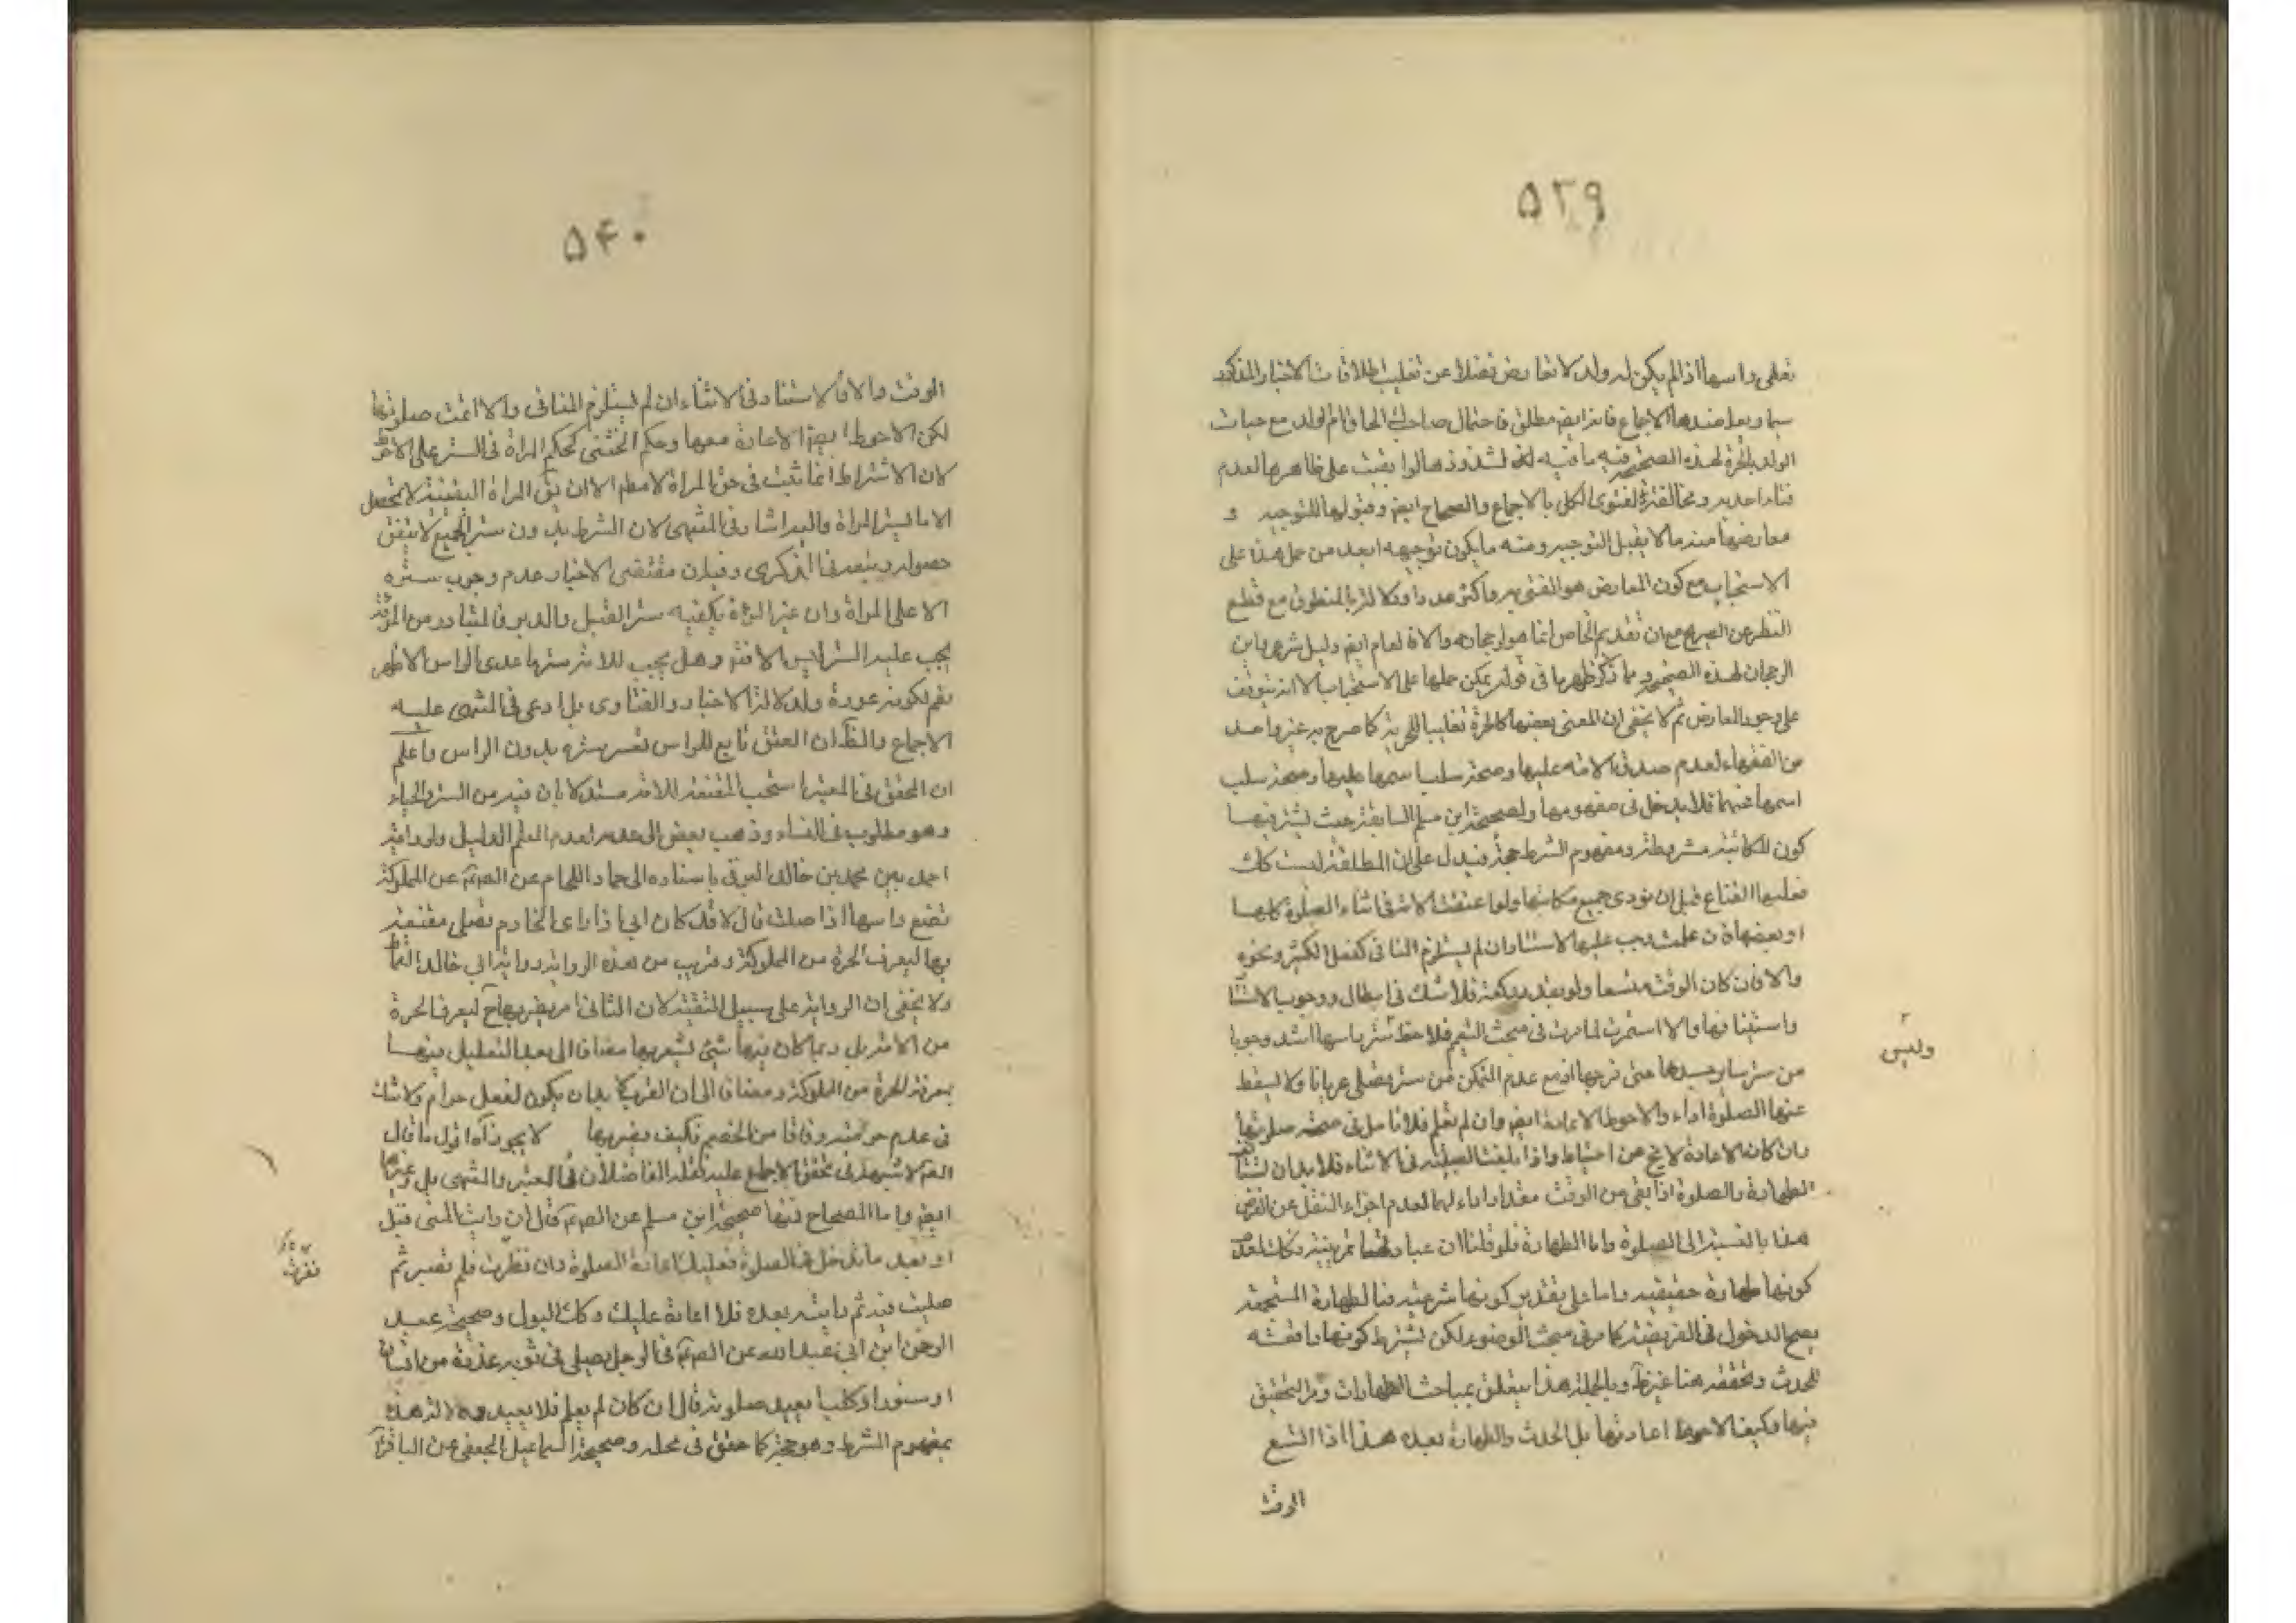 ۵۳۹
تغطى راسها اذا لم يكن له ولد لا تعارض فضلا عن تغليب اطلاقات الاخبار المذكورة
سيما وبعاضدها الاجماع فانه ايضا مطلق فاحتمال صاحب الحاق ام الولد مع حيات
الولد بالحرة لهذه الصحيحة فيه ما فيه لشذوذها لو ابقيت على ظاهرها لعدم
ومخالفته لفتوى الكل بالاجماع والصحاح ايضا وقبولها للتوجيه و
معارضها منه ما لا يقبل التوجيه ومنه ما يكون توجيهه ابعد من حمل هذا على
الاستحباب مع كون المعارض هو المفتى به واكثر عددا ودلالته بالمنطوق مع قطع
النظر عن الصريح مع ان تقديم الخاص انما هو لرجحانه والا فالعام ايضا دليل شرعي فاين
الرجحان لهذه الصحيحة وما ذكر ظهر ما في قوله يمكن حملها على الاستحباب الا انه يتوقف
على وجود المعارض ثم لا يخفى ان المعتق بعضها كالحرة تغليبا للحرية كما صرح به غير واحد
من الفقهاء لعدم صدق الامة عليها وصحة سلب اسمها عليها وصحة سلب
اسمها عنها فلا يدخل في مفهومها ولصحيحة ابن مسلم السابقة حيث يشترط فيها
كون المكاتبة مشروطة ومفهوم الشرط حجة فيدل على ان المطلقة ليست كك
فعليها القناع قبل ان تؤدى جميع مكاتبتها ولو اعتقت الامة في اثناء الصلوة كلها
او بعضها فان علمت يجب عليها الاستتار ان لم يستلزم المنافي كفعل الكثير ونحوه
والا فان كان الوقت متسعا ولو بقدر ركعة فلا شك في ابطال ووجوب الاستتار
واستينافها والا استمرت لما مرت في مبحث التيمم فلاحظ ستر راسها اشد وجوبا
من ستر ساير جسدها حتى فرجها اذ مع عدم التمكن من ستره تصلى عريانا ولا يسقط
عنها الصلوة اداء والاحوط الاعادة ايضا وان لم تعلم فلا تامل في صحة صلوتها
وان كان الاعادة لا يخ عن احتياط واذا بلغت الصبية في الاثناء فلا بد ان تستانف
الطهارة والصلوة اذا بقى من الوقت مقدار اداء لهما لعدم اجزاء النفل عن الفرض
هذا بالنسبة الى الصلوة واما الطهارة فلو قلنا ان عبادتها تمرينية فكك لعدم
كونها طهارة حقيقية واما على تقدير كونها شرعية فبالطهارة المستحبة
يصح الدخول في الفريضة كما مر في مبحث الوضوء لكن يشترط كونها رافعة
للحدث وتحققه هنا غير ظ وبالجملة هذا يتعلق بمباحث الطهارات ومر التحقيق
فيها وكيف الاحوط اعادتها بل الحدث والطهارة بعده هذا اذا اتسع
الوقت
وليس
۵۴۰
الوقت والا فالاستتار في الاثناء ان لم يستلزم المنافي والا اتمت صلوتها
لكن الاحوط ايضا الاعادة معها وحكم الخنثى كحكم المراة في الستر على الاحوط
لان الاشتراط انما ثبت في حق المراة لا مطم الا ان يق البراءة اليقينية لا تحصل
الا ما يستر المراة واليه اشار في المنتهى لان الشرط بدون ستر الجميع لا يتيقن
حصوله ويبعد في الذكرى وقيل ان مقتضى الاخبار عدم وجوب ستره
الا على المراة وان غير المراة يكفيه ستر القبل والدبر فالمتبادر من المراة
يجب عليه الستر ليس الا فتم وهل يجب للامة سترها عدى الراس الاظهر
نعم لكونه عورة ولدلالة الاخبار والفتاوى بل ادعى في المنتهى عليه
الاجماع والظ ان العنق تابع للراس لعسر ستره بدون الراس واعلم
ان المحقق في المعتبر استحب المقنعة للامة مستدلا بان فيه من الستر والحياء
وهو مطلوب في النساء وذهب بعض الى عدمه لعدم العلم الدليل ولرواية
احمد بن محمد بن خالد البرقي باسناده الى حماد اللحام عن الصم عن المملوكة
تقنع راسها اذا صلت قال لا قد كان ابي اذا راى الخادم تصلى مقنعة
بها ليعرف الحرة من المملوكة وقريب من هذه الرواية رواية ابي خالد القماط
ولا يخفى ان الرواية على سبيل التقية لان الثاني امر بضربهاح ليعرف الحرة
من الامة بل ربما كان فيها شئ يشعر بها مضافا الى بعد التعليل فيها
بمعرفة الحرة من المملوكة ومضافا الى ان الضرب لا بد ان يكون لفعل حرام ولا شك
في عدم حرمته وفاقا من الخصم فكيف يضربها لا يجوز آه اقول ما قال
المصم لا شبهة في تحقق الاجماع عليه نقله الفاضلان في المعتبر والمنتهى بل وغيرها
ايضا واما الصحاح فمنها صحيحة ابن مسلم عن الصم قال ان رايت المنى قبل
او بعد ما تدخل في الصلوة فعليك اعادة الصلوة وان نظرت فلم تصبه ثم
صليت فيه ثم رايته بعده فلا اعادة عليك وكك البول وصحيحة عبد
الرحمن ابن ابي عبد الله عن الصم في الرجل يصلى في ثوبه عذرة من انسان
او سنور او كلب ايعيد صلوته قال ان كان لم يعلم فلا يعيد ودلالة هذه
بمفهوم الشرط وهو حجة كما حقق في محله وصحيحة اسماعيل الجعفى عن الباقر